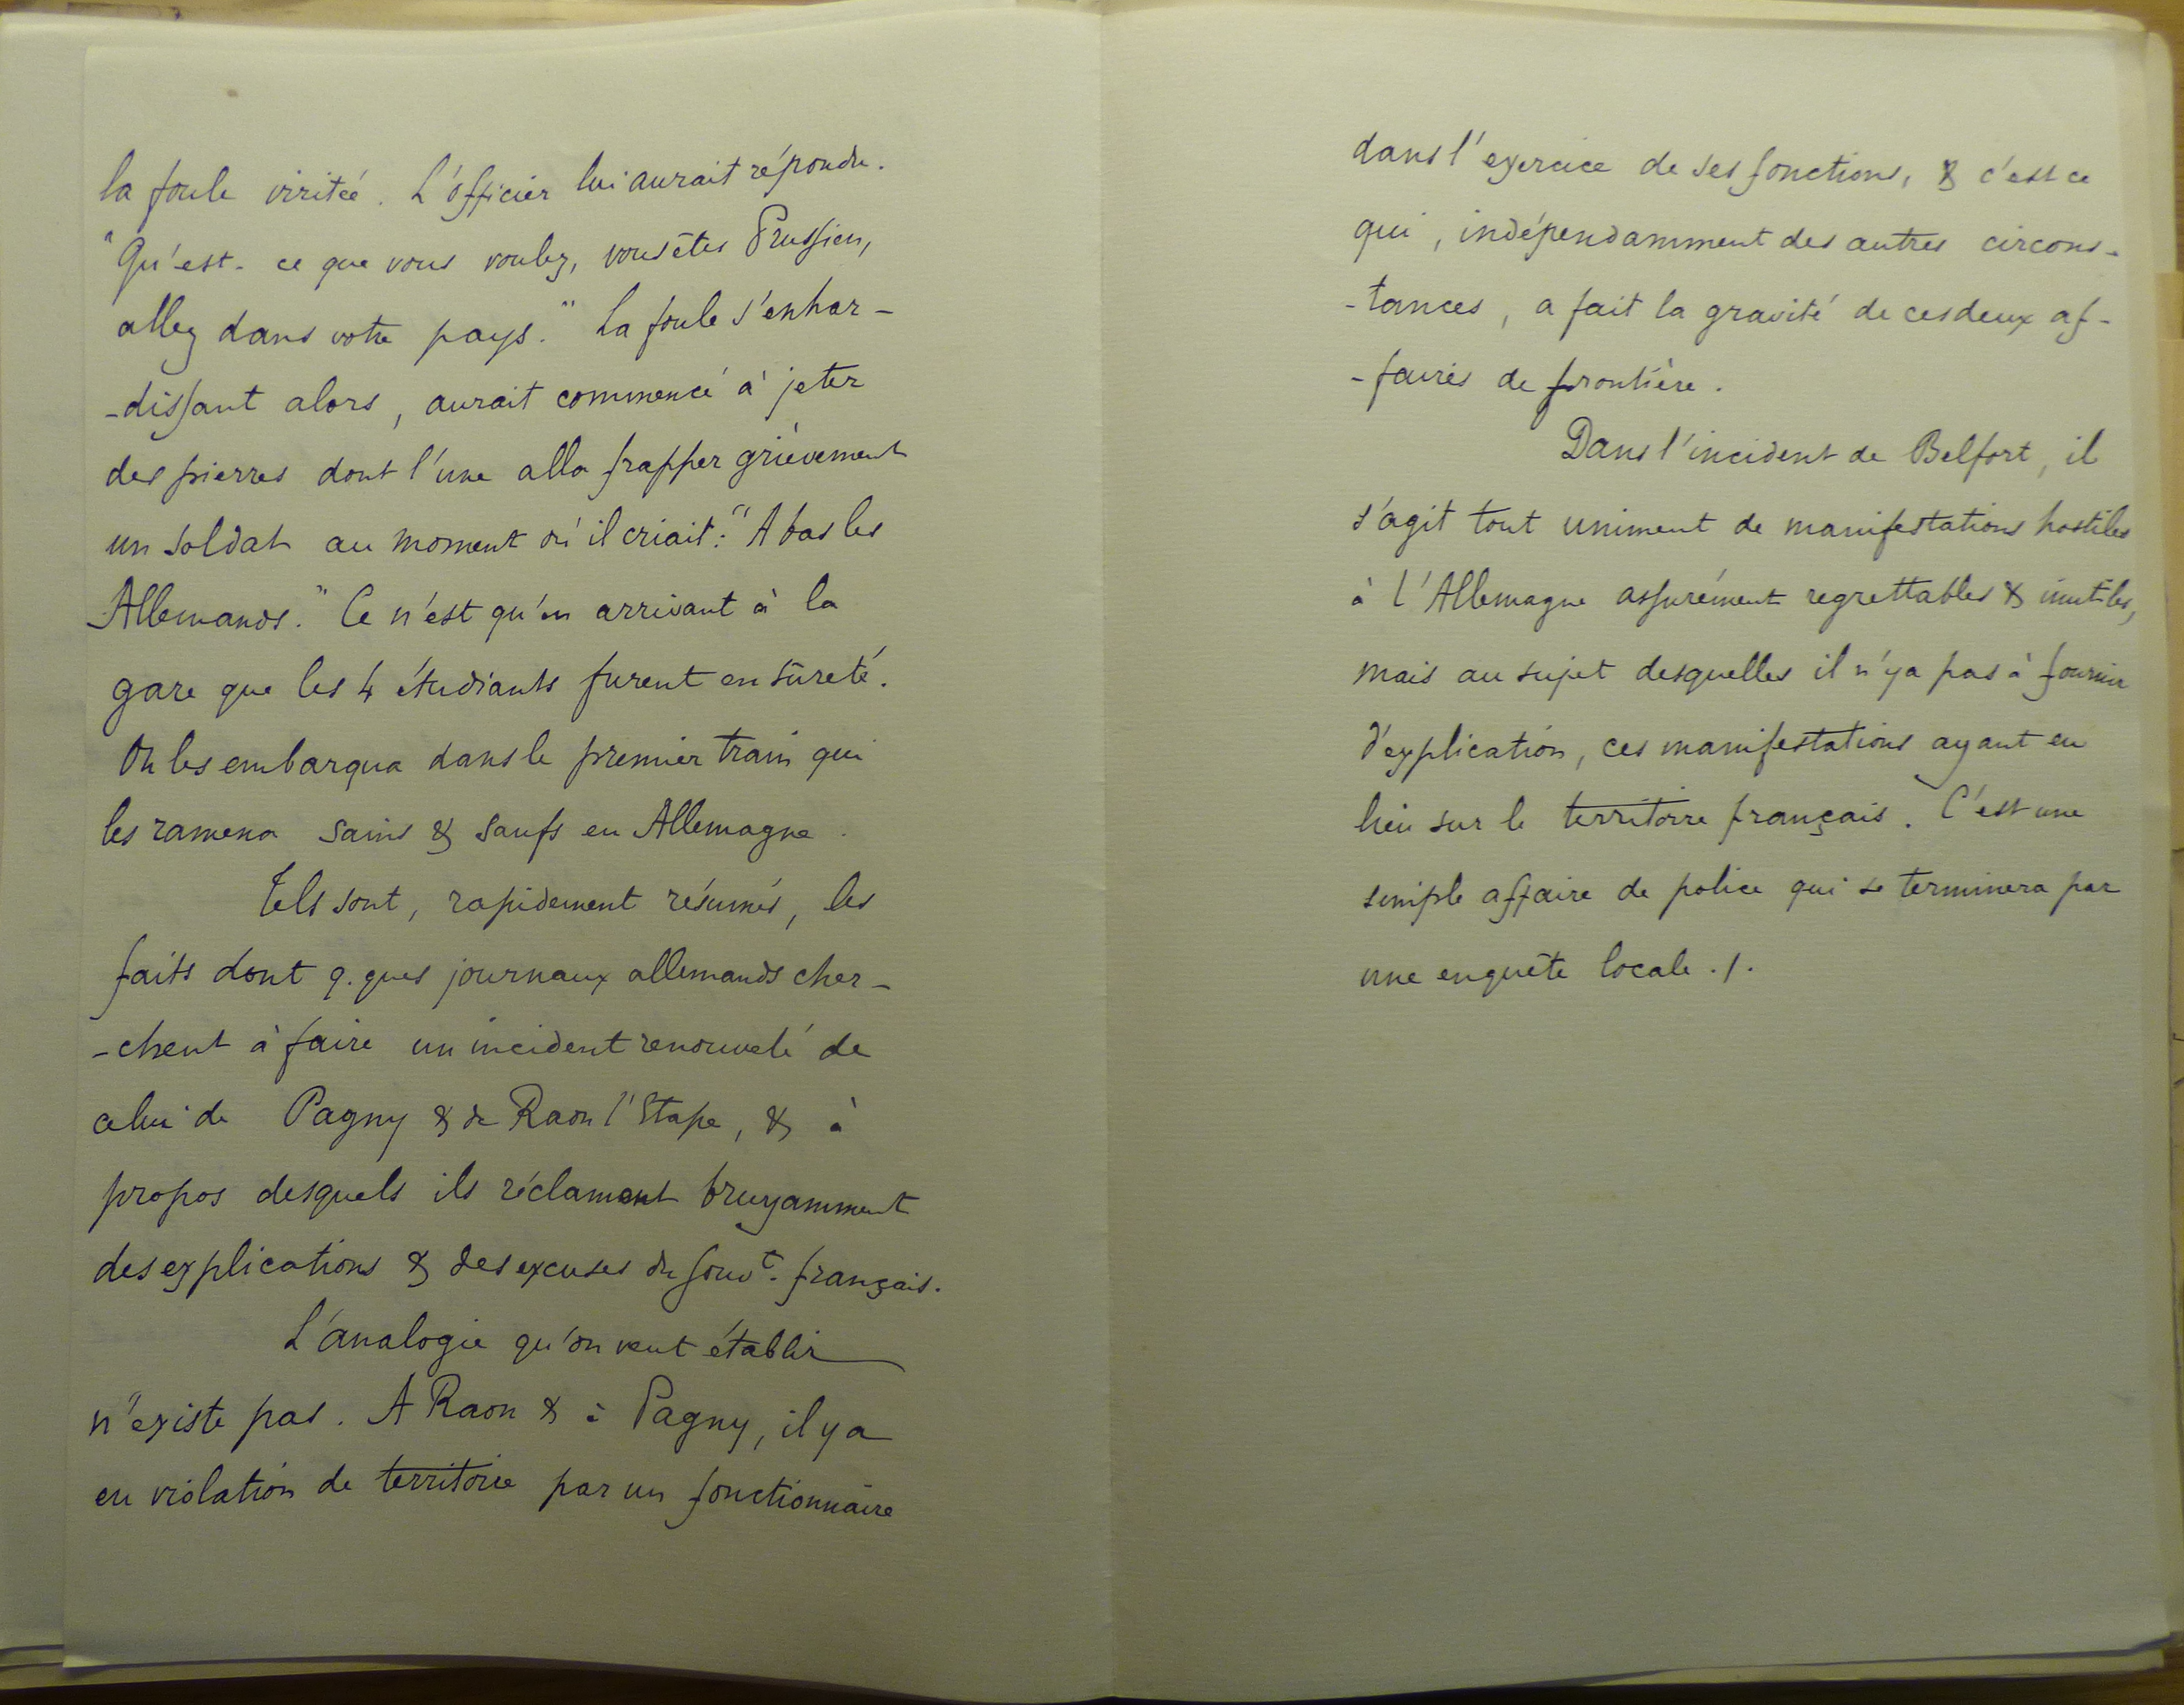 la foule irritée. L'officier lui aurait répondu.
"Qu'est-ce que vous voulez, vous êtes Prussien,
allez dans votre pays." La foule s'enhar-
-dissant alors, aurait commencé à jeter
des pierres dont l'une alla frapper grièvement
un soldat au moment où il criait: "A bas les
Allemands." Ce n'est qu'en arrivant à la
gare que les 4 étudiants furent en sûreté.
On les embarqua dans le premier train qui
les ramena sains & saufs en Allemagne.
Tels sont, rapidement résumés, les
faits dont q.ques journaux allemands cher-
-chent à faire un incident renouvelé de
celui de Pagny & de Raon l'Etape, & à
propos desquels ils réclament bruyamment
des explications & des excuses du Gouvt. français.
L'analogie qu'on veut établir
n'existe pas. A Raon & à Pagny, il y a
eu violation de territoire par un fonctionnaire
dans l'exercice de ses fonctions, & c'est ce
qui, indépendamment des autres circons-
-tances, a fait la gravité de ces deux af-
-faires de frontière.
Dans l'incident de Belfort, il
s'agit tout uniment de manifestations hostiles
à l'Allemagne assurément regrettables & inutiles,
mais au sujet desquelles il n'y a pas à fournir
d'explication, ces manifestations ayant eu
lieu sur le territoire français. C'est une
simple affaire de police qui se terminera par
une enquête locale ./.